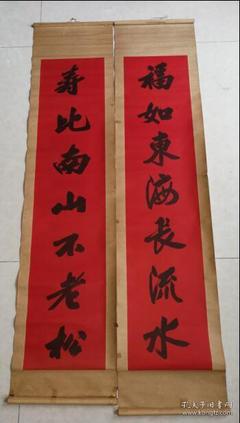 福如東海長流水
寿比南山不老松
孔夫子旧书网